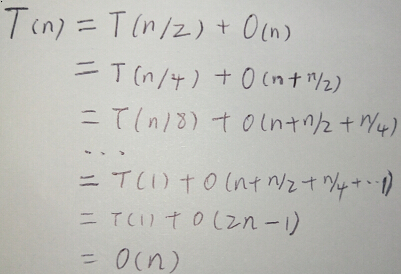 T(n) = T(n/2) + O(n)
= T(n/4) + O(n+n/2)
= T(n/8) + O(n+n/2+n/4)
...
= T(1) + O(n+n/2+n/4+...1)
= T(1) + O(2n-1)
= O(n)